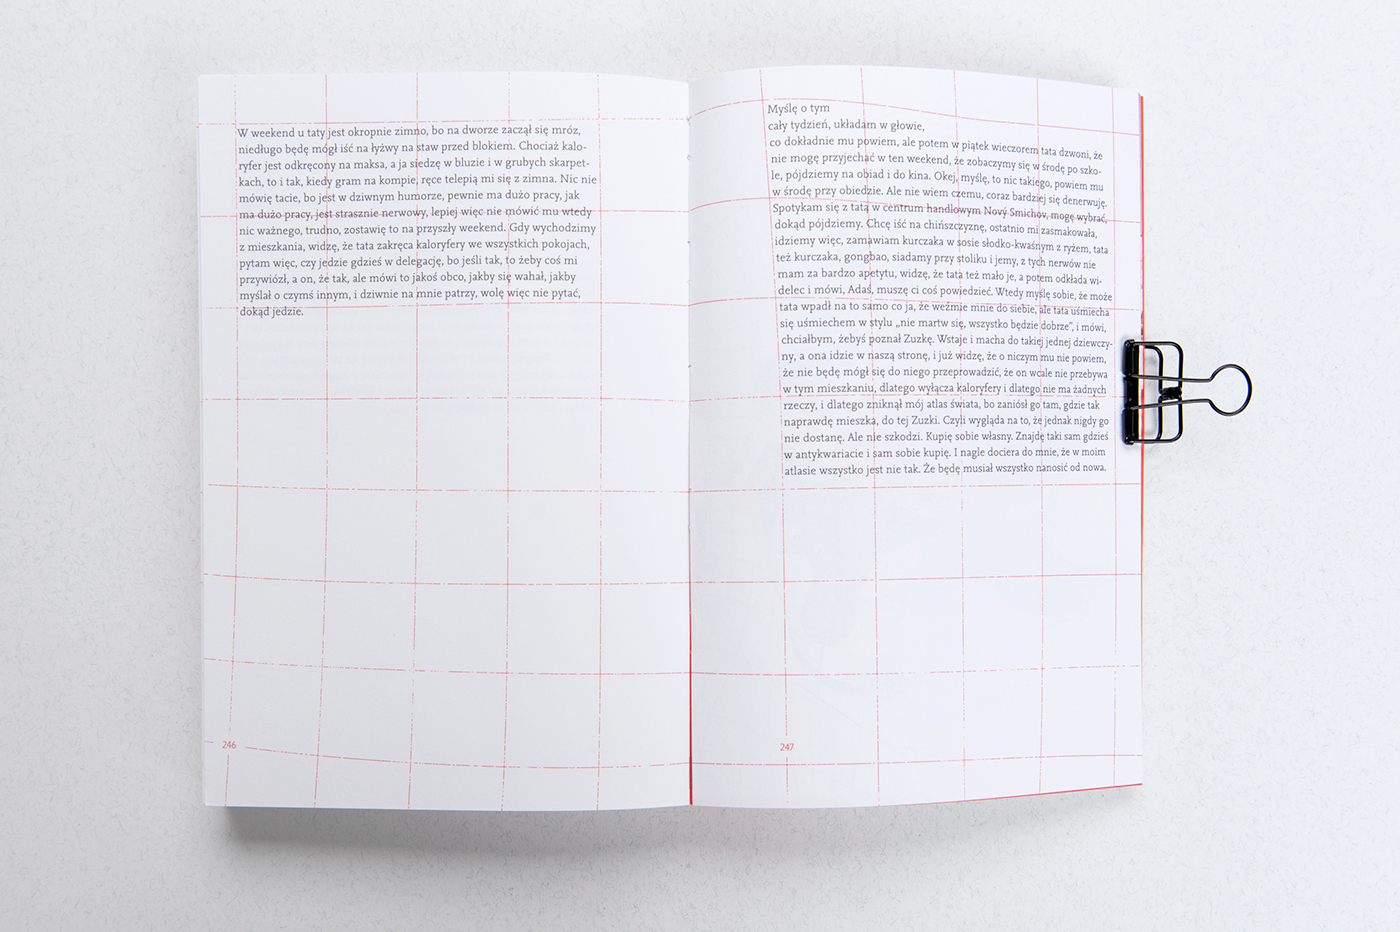 W weekend u taty jest okropnie zimno, bo na dworze zaczął się mróz,
niedługo będę mógł iść na łyżwy na staw przed blokiem. Chociaż kalo-
ryfer jest odkręcony na maksa, a ja siedzę w bluzie i w grubych skarpet-
kach, to i tak, kiedy gram na kompie, ręce telepią mi się z zimna. Nic nie
mówię tacie, bo jest w dziwnym humorze, pewnie ma dużo pracy, jak
ma dużo pracy, jest strasznie nerwowy, lepiej więc nie mówić mu wtedy
nic ważnego, trudno, zostawię to na przyszły weekend. Gdy wychodzimy
z mieszkania, widzę, że tata zakręca kaloryfery we wszystkich pokojach,
pytam więc, czy jedzie gdzieś w delegację, bo jeśli tak, to żeby coś mi
przywiózł, a on, że tak, ale mówi to jakoś obco, jakby się wahał, jakby
myślał o czymś innym, i dziwnie na mnie patrzy, wolę więc nie pytać,
dokąd jedzie.
246
Myślę o tym
cały tydzień, układam w głowie,
co dokładnie mu powiem, ale potem w piątek wieczorem tata dzwoni, że
nie mogę przyjechać w ten weekend, że zobaczymy się w środę po szko-
le, pójdziemy na obiad i do kina. Okej, myślę, to nic takiego, powiem mu
w środę przy obiedzie. Ale nie wiem czemu, coraz bardziej się denerwuję.
Spotykam się z tatą w centrum handlowym Nový Smichov, mogę wybrać,
dokąd pójdziemy. Chcę iść na chińszczyznę, ostatnio mi zasmakowała,
idziemy więc, zamawiam kurczaka w sosie słodko-kwaśnym z ryżem, tata
też kurczaka, gongbao, siadamy przy stoliku i jemy, z tych nerwów nie
mam za bardzo apetytu, widzę, że tata też mało je, a potem odkłada wi-
delec i mówi, Adaś, muszę ci coś powiedzieć. Wtedy myślę sobie, że może
tata wpadł na to samo co ja, że weźmie mnie do siebie, ale tata uśmiecha
się uśmiechem w stylu „nie martw się, wszystko będzie dobrze”, i mówi,
chciałbym, żebyś poznał Zuzkę. Wstaje i macha do takiej jednej dziewczy-
ny, a ona idzie w naszą stronę, i już widzę, że o niczym mu nie powiem,
że nie będę mógł się do niego przeprowadzić, że on wcale nie przebywa
w tym mieszkaniu, dlatego wyłącza kaloryfery i dlatego nie ma żadnych
rzeczy, i dlatego zniknął mój atlas świata, bo zaniósł go tam, gdzie tak
naprawdę mieszka, do tej Zuzki. Czyli wygląda na to, że jednak nigdy go
nie dostanę. Ale nie szkodzi. Kupię sobie własny. Znajdę taki sam gdzieś
w antykwariacie i sam sobie kupię. I nagle dociera do mnie, że w moim
atlasie wszystko jest nie tak. Że będę musiał wszystko nanosić od nowa.
247